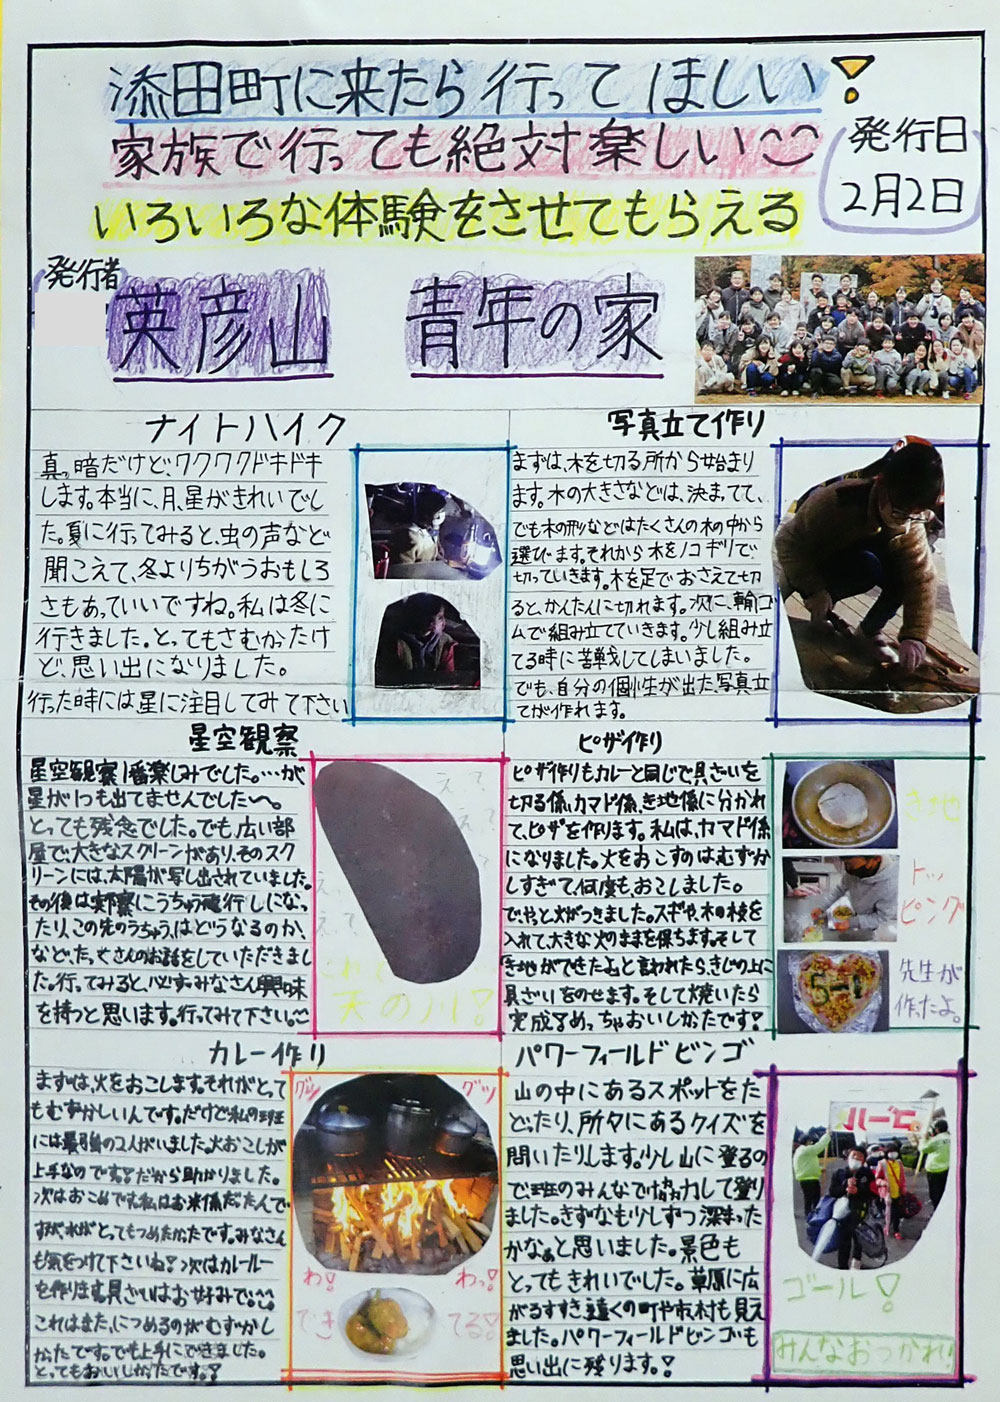 添田町に来たら行ってほしい!
家族で行っても絶対楽しい
いろいろな体験をさせてもらえる
発行日
2月2日
発行者
英彦山 青年の家
ナイトハイク
真っ暗だけど、ワクワクドキドキ
します。本当に、月、星がきれいでし
た。夏に行ってみると、虫の声など
聞こえて、冬よりちがうおもしろ
さもあっていいですね。私は冬に
行きました。とってもさむかったけ
ど、思い出になりました。
行った時には星に注目してみて下さい
写真立て作り
まずは、木を切る所から始まり
ます。木の大きさなどは、決まってて、
でも木の形などはたくさんの木の中から
選びます。それから木をノコギリで
切っていきます。木を足でおさえて切
ると、かんたんに切れます。次に、輪ゴ
ムで組み立てていきます。少し組み立
てる時に苦戦してしまいました。
でも、自分の個性が出た、写真立
てが作れます。
星空観察
星空観察1番楽しみでした。…が
星が1つも出てませんでした〜。
とっても残念でした。でも広い部
屋で、大きなスクリーンがあり、そのスク
リーンには、太陽が写し出されていました。
その後は実際にうちゅう飛行しになっ
たり、この先のうちゅうはどうなるのか、
などたくさんのお話をしていただきまし
た。行ってみると、必ずみなさん興味
を持つと思います。行ってみて下さい。
えて
えて
天の川!
ピザ作り
ピザ作りもカレーと同じで具ざいを
切る係、カマド係、き地係に分かれ
て、ピザを作ります。私は、カマド係
になりました。火をおこすのはむずか
しすぎて、何度も、おこしました。
でやっと火がつきました。スギや、木の枝を
入れて、大きな火のままを保ちます。そして
「き地ができたよ」と言われたら、きじの上に
具ざいをのせます。そして焼いたら
完成!めっちゃおいしかったです!
き地
トッ
ピング
先生が
作ったよ。
5-1
カレー作り
まずは、火をおこします。それがとて
もむずかしいんです。だけど私の班
には最強の2人がいました。火おこしが
上手なのです!だから助かりました。
次はおこめです。私はお米係だったんで
すが、水がとってもつめたかったです。みなさん
も気をつけて下さいね!次はカレールー
を作ります。具ざいはお好みで。
これはまた、につめるのがむずかし
かったです。でも上手にできました。
とってもおいしかったです。!
グツ
グツ
わ!
わっ!
でき
てる!
パワーフィールドビンゴ
山の中にあるスポットをた
どったり、所々にあるクイズを
聞いたりします。少し山に登るの
で、班のみんなで協力して登り
ました。きずなも少しずつ深まった
かなぁと思いました。景色も
とってもきれいでした。草原に広
がるすすき、遠くの町や市、村も見え
ました。パワーフィールドビンゴも
思い出に残ります。!
ゴール!
みんなおつかれ!